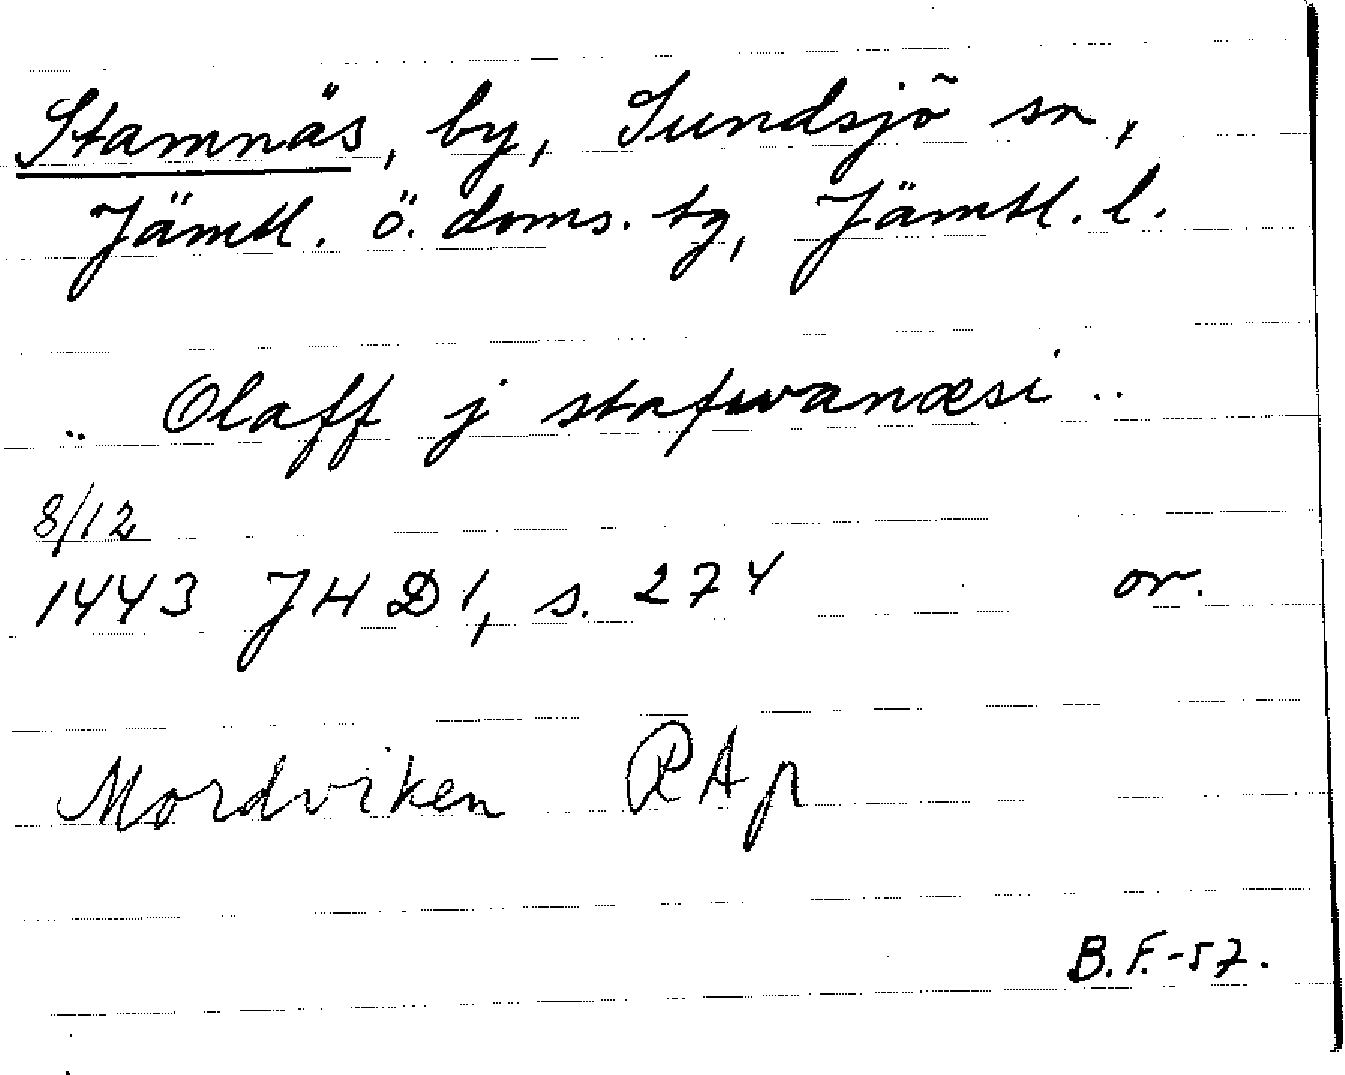 Stamnäs, by, Sundsjö sn,
Jämtl. ö. doms. tg, Jämtl. l.
.. Olaff j stafwanæsi ..
8/12
1443 JHD 1, s. 274 or.
Mordviken RAp
B.F.-57.